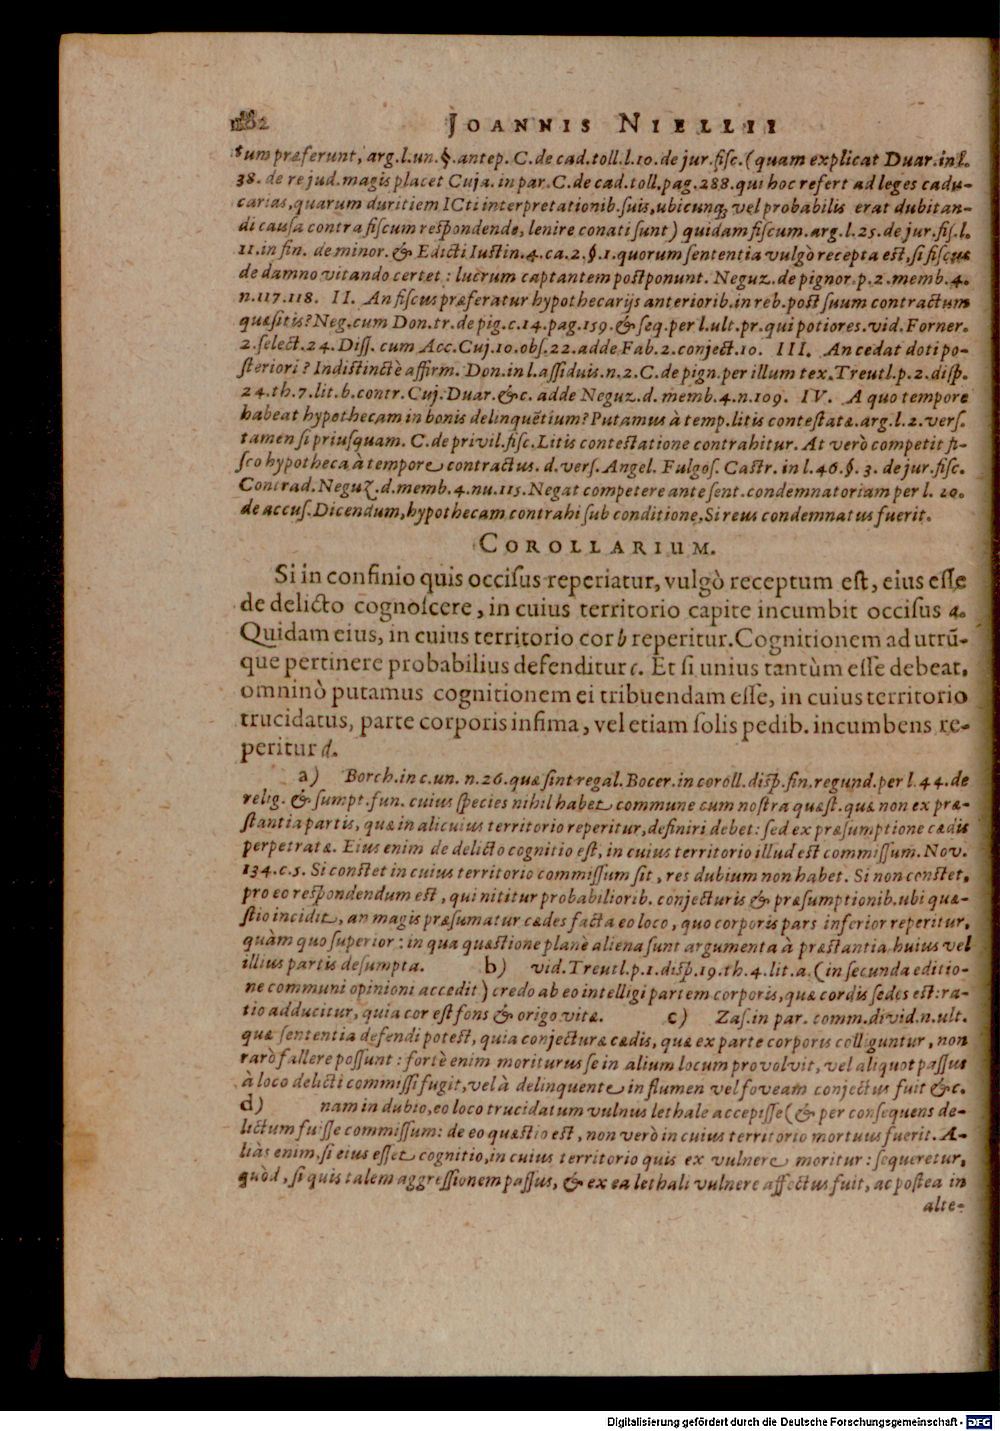 182 JOANNIS NIELLII
tum præferunt, arg.l.un.§.antep. C.de cad.toll.l.10.de jur.fisc.(quam explicat Duar.in l.
38. de re jud.magis placet Cuja. in par.C.de cad.toll.pag.288.qui hoc refert ad leges cadu-
carias,quarum duritiem ICti interpretationib.suis,ubicunq; vel probabilis erat dubitan-
di causa contra fiscum respondendo, lenire conati sunt) quidam fiscum.arg.l.25.de jur.fis.l.
11.in fin. de minor.& Edicti Iustin.4.ca.2.§.1.quorum sententia vulgò recepta est,si fiscus
de damno vitando certet: lucrum captantem postponunt. Neguz.de pignor.p.2.memb.4.
n.117.118. II. An fiscus præferatur hypothecarijs anteriorib.in reb.post suum contractum
quæsitis? Neg.cum Don.tr.de pig.c.14.pag.159.& seq.per l.ult.pr.qui potiores.vid.Forner.
2.select.24.Diss. cum Acc.Cuj.10.obs.22.adde Fab.2.conject.10. III. An cedat doti po-
steriori? Indistinctè affirm. Don.in l.assiduis.n.2.C.de pign.per illum tex.Treutl.p.2.disp.
24.th.7.lit.b.contr.Cuj.Duar.&c. adde Neguz.d.memb.4.n.109. IV. A quo tempore
habeat hypothecam in bonis delinquẽtium? Putamus à temp.litis contestatæ.arg.l.2.vers.
tamen si priusquam. C.de privil.fisc.Litis contestatione contrahitur. At verò competit fi-
sco hypotheca à tempore contractus. d.vers. Angel. Fulgos. Castr. in l.46.§.3. de jur.fisc.
Contrad.Neguz.d.memb.4.nu.115.Negat competere ante sent.condemnatoriam per l. 20.
de accus.Dicendum,hypothecam contrahi sub conditione,Si reus condemnatus fuerit.
COROLLARIUM.
Si in confinio quis occisus reperiatur, vulgò receptum est, eius esse
de delicto cognoscere, in cuius territorio capite incumbit occisus a.
Quidam eius, in cuius territorio cor b reperitur. Cognitionem ad utrũ-
que pertinere probabilius defenditur c. Et si unius tantùm esse debeat,
omninò putamus cognitionem ei tribuendam esse, in cuius territorio
trucidatus, parte corporis infima, vel etiam solis pedib. incumbens re-
peritur d.
a) Borch.in c.un. n.26.quæ sint regal.Bocer.in coroll.disp.fin.regund.per l.44.de
relig. & sumpt.fun. cuius species nihil habet commune cum nostra quæst.quæ non ex præ-
stantia partis, quæ in alicuius territorio reperitur, definiri debet: sed ex præsumptione cædis
perpetratæ. Eius enim de delicto cognitio est, in cuius territorio illud est commissum. Nov.
134.c.5. Si constet in cuius territorio commissum sit, res dubium non habet. Si non constet,
pro eo respondendum est, qui nititur probabiliorib. conjecturis & præsumptionib. ubi quæ-
stio incidit, an magis præsumatur cædes facta eo loco, quo corporis pars inferior reperitur,
quàm quo superior: in qua quæstione planè aliena sunt argumenta à præstantia huius vel
illius partis desumpta. b) vid.Treutl.p.1.disp.19.th.4.lit.a.(in secunda editio-
ne communi opinioni accedit) credo ab eo intelligi partem corporis, quæ cordis sedes est: ra-
tio adducitur, quia cor est fons & origo vitæ. c) Zas.in par. comm.divid.n.ult.
quæ sententia defendi potest, quia conjecturæ cædis, quæ ex parte corporis colliguntur, non
rarò fallere possunt: fortè enim moriturus se in alium locum provolvit, vel aliquot passus
à loco delicti commissi fugit, vel à delinquente in flumen vel foveam conjectus fuit &c.
d) nam in dubio, eo loco trucidatum vulnus lethale accepisse (& per consequens de-
lictum fuisse commissum: de eo quæstio est, non verò in cuius territorio mortuus fuerit. A-
liàs enim, si eius esset cognitio, in cuius territorio quis ex vulnere moritur: sequeretur,
quòd, si quis talem aggressionem passus, & ex ea lethali vulnere affectus fuit, ac postea in
alte-
Digitalisierung gefördert durch die Deutsche Forschungsgemeinschaft - DFG